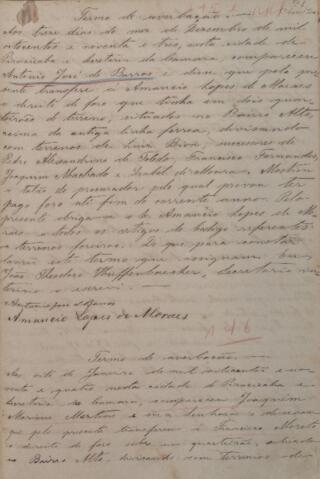 Termo de averbação
Aos trese dias do mez de Dezembro de mil
oitocentos e noventa e tres, nesta cidade de
Piracicaba e secretaria da camara, compareceu
Antonio José de Barros e disse que pelo pre
sente transfere á Amancio Lopes de Moraes
o direito de foro que tinha em dois quar
teirões de terreno, situados no Bairro Alto
acima da antiga linha ferrea, divisando
com terrenos de Luiz successores de
Pedro Alexandrino de Toledo, Francisco Fernandes,
Joaquim Machado e Izabel de Moura. Mostrou
o talão do procurador pelo qual provou ter
pago foro até fim do corrente anno. Pelo
presente obriga-se o sr. Amancio Lopes de Mo
raes a todos os artigos do codigo referentes
a terrenos foreiros. Do que para constar
lavrei este termo que assignam. Eu,
João Theodoro Secretario in
terino o escrevi
Antonio José de Barros
Amancio Lopes de Moraes
146
Termo de averbação
Aos oito de Janeiro de mil oitocentos e no
venta e quatro nesta cidade de Piracicaba e
secretaria da camara, compareceu Joaquim
Mariano Martins e sua senhora e disseram
que pelo presente transferem á Francisco Moreto
o direito de foro sobre um quarteirão, situado
no Bairro Alto, divisando com terrenos de